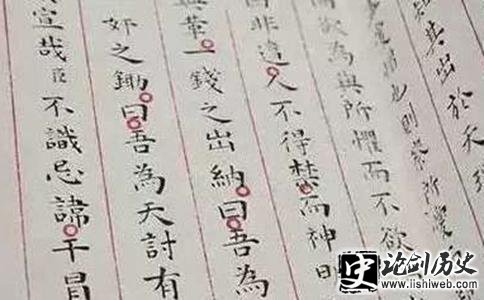 其出於天
也則恭所
欲為與所懼而不欲
非遠人不得焚而神明
華一錢之出納曰吾為
奸之鋤曰吾為天討有
宣哉臣不識忌諱干冒
史 论剑历史
www.lishiweb.com